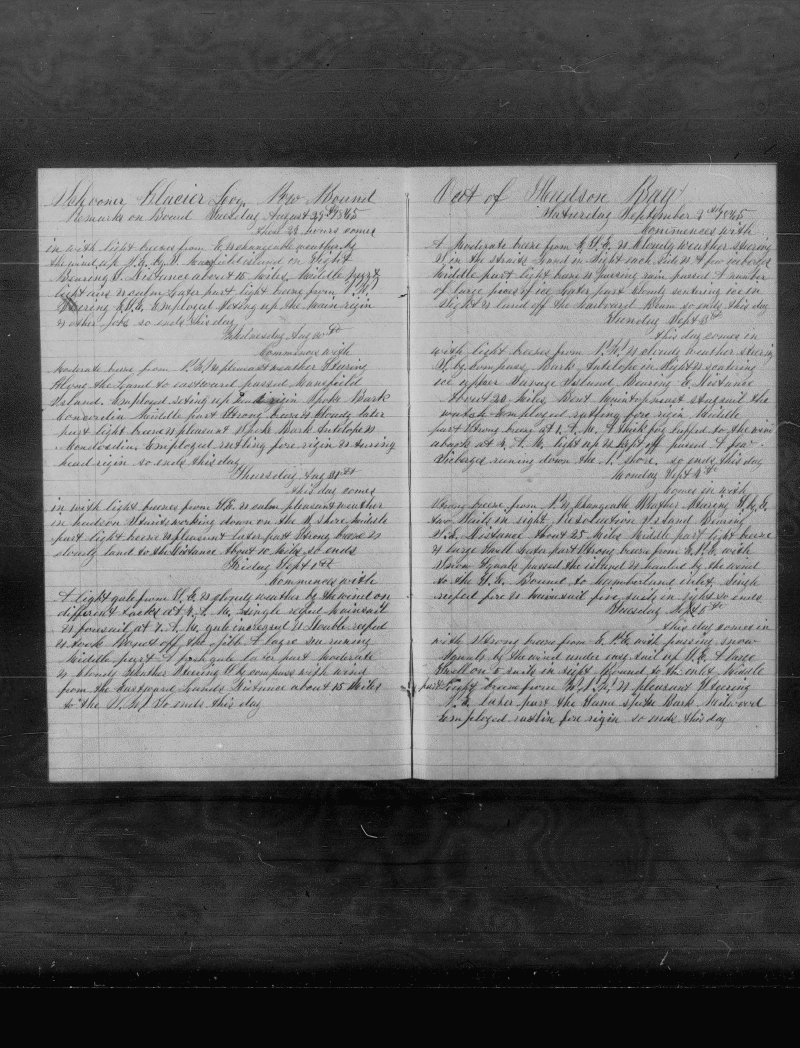 Schooner Glacier Log Bound
Remarks on Board Tuesday August 29th 1865
these 24 hours comes
in with light breese from E & changeable weather by
the wind up Mansfield island on Sight
Bearing Distance about 15 Miles Middle
light airs & calm Later part light breese from
Steering Employed seting up the main rigin
& other jobs so ends this day
Wednesday Aug 30th
Commences with
Moderate breese from & pleasant weather Steering
Along the Land to eastward passed Mansfield
Island Employed seting up rigin Spoke Bark
Concordia Middle part Strong breese & Cloudy later
part light breese & pleasant Spoke Bark Antelope &
Employed ratling fore rigin &
head rigin so ends this day
Thursday Aug 31st
this day comes
in with light breese from S.E. & calm pleasant weather
in hudson Straits working down on the shore Middle
part light breese & pleasent later part Strong breese &
cloudy land to the Distance about 10 Miles so ends
Friday Sept 1st
Commences with
A light gale from S E & cloudy weather by the wind on
different tacks at A, M, single reefed mainsail
& foresail at 7. A. M. gale increased & double reefed
& took Bonet off the jib A large sea runing
Middle part A fresh gale later part moderate
& Cloudy Weather Steering by compass with wind
from the Eastward Lands Distance about 15 Miles
to the So ends this day
Out of Hudson Bay
Saturday September 2nd 1865
Commences with
A moderate breese from & Cloudy weather steering
in the straits Land in sight each side & A few iceburgs
Middle part light breese & passing rain passed A number
of large pieces of ice Later part Cloudy scatering ice in
sight & land off the Larboard Beam so ends this day
Sunday Sept 3rd
this day comes in
with light breeses from & cloudy weather steering
by compass Bark Antelope in sight & scatering
ice upper Savage Island Bearing E Distance
About 20 Miles Bent stay sail the
watch Employed ratling fore rigin Middle
part Strong breese at A. M. thick fog luffed to the wind
aback at 4 A. M. light up & kept off passed A few
Iceburgs runing down the shore so ends this day
Monday Sept 4th
Comes in with
Strong breese from & changeable Weather Stearing
two Sails in sight Resolution Island Bearing
Distance About 25 Miles Middle part light breese
& large Swell Later part Strong breese from with
Snow Squals passed the island & hauled by the wind
to the Bound to Cumberland inlet single
reefed fore & mainsail five sails in sight so ends
Tuesday Sept 5th
this day comes in
with Strong breese from with passing snow
squals by the wind under easy sail up A large
Swell on 5 sails in sight Bound to the inlet Middle
part Light breese from & pleasant Steering
later part the Same spoke Bark Milwood
Employed ratlin fore rigin so ends this day